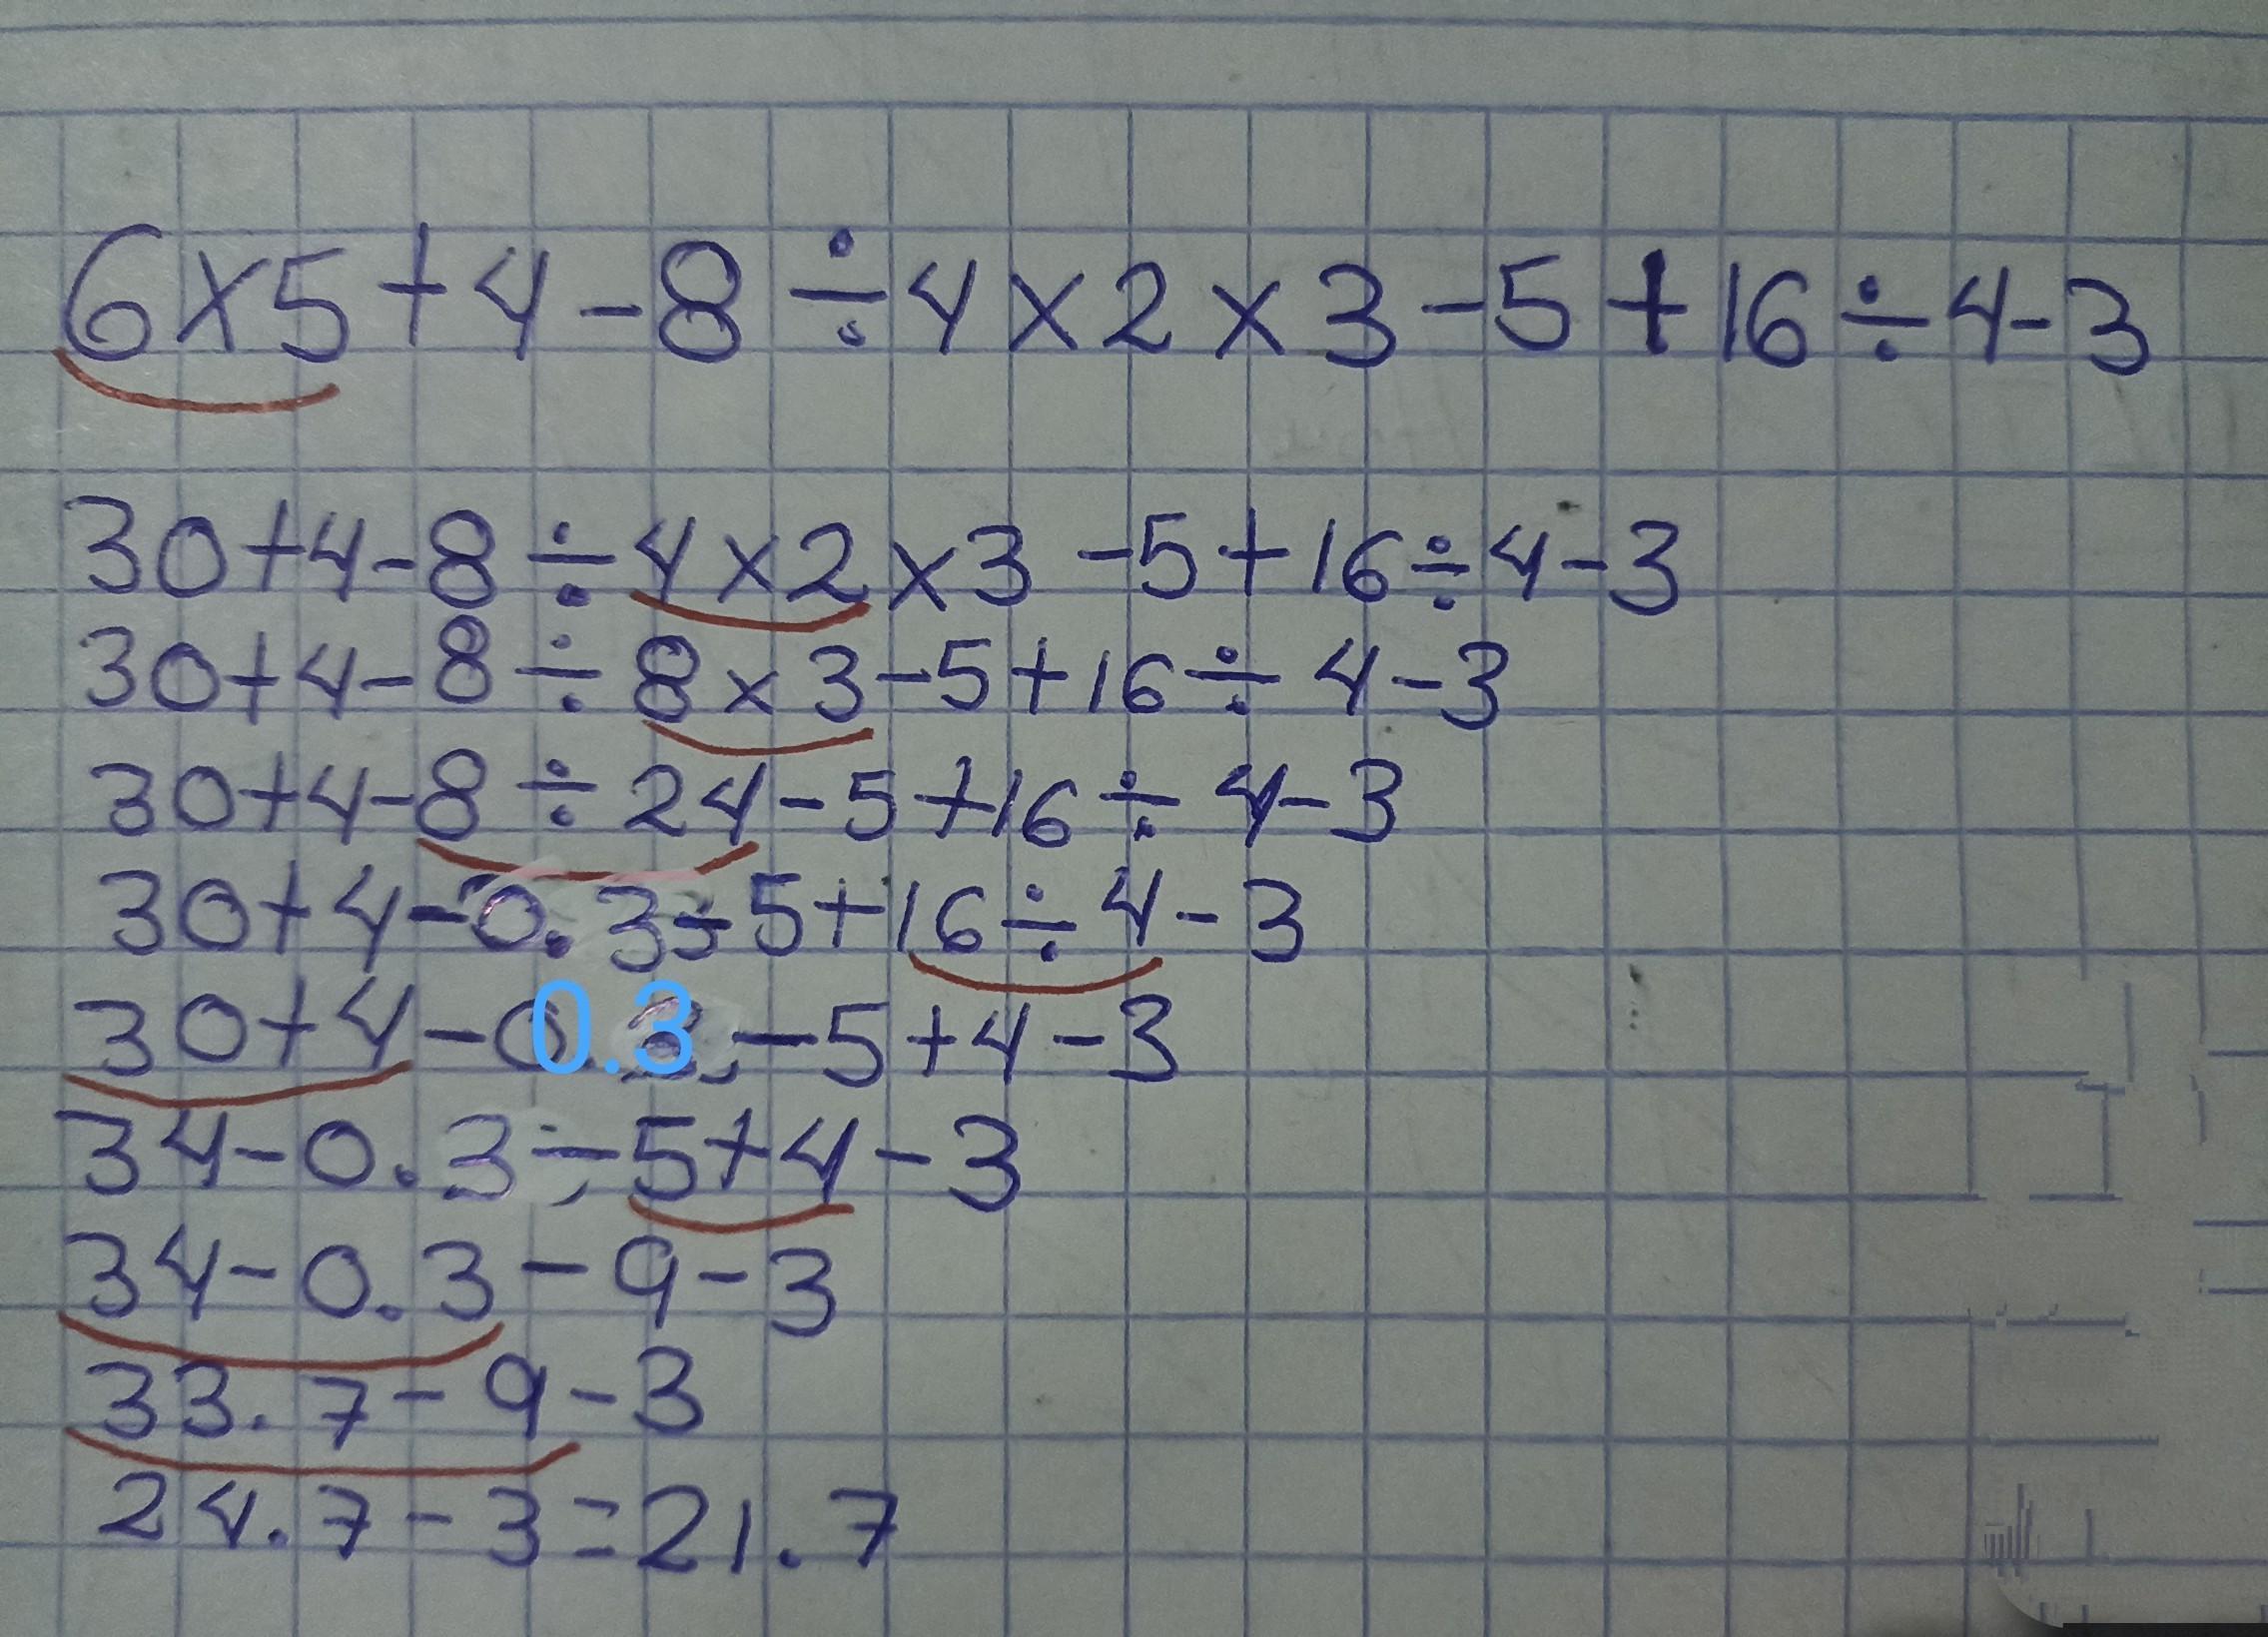 6×5+4-8÷4×2×3-5+16÷4-3
30+4-8÷4×2×3-5+16÷4-3
30+4-8÷8×3-5+16÷4-3
30+4-8÷24-5+16÷4-3
30+4-0.3-5+16÷4-3
30+4-0.3-5+4-3
34-0.3-5+4-3
34-0.3-9-3
33.7-9-3
24.7-3=21.7